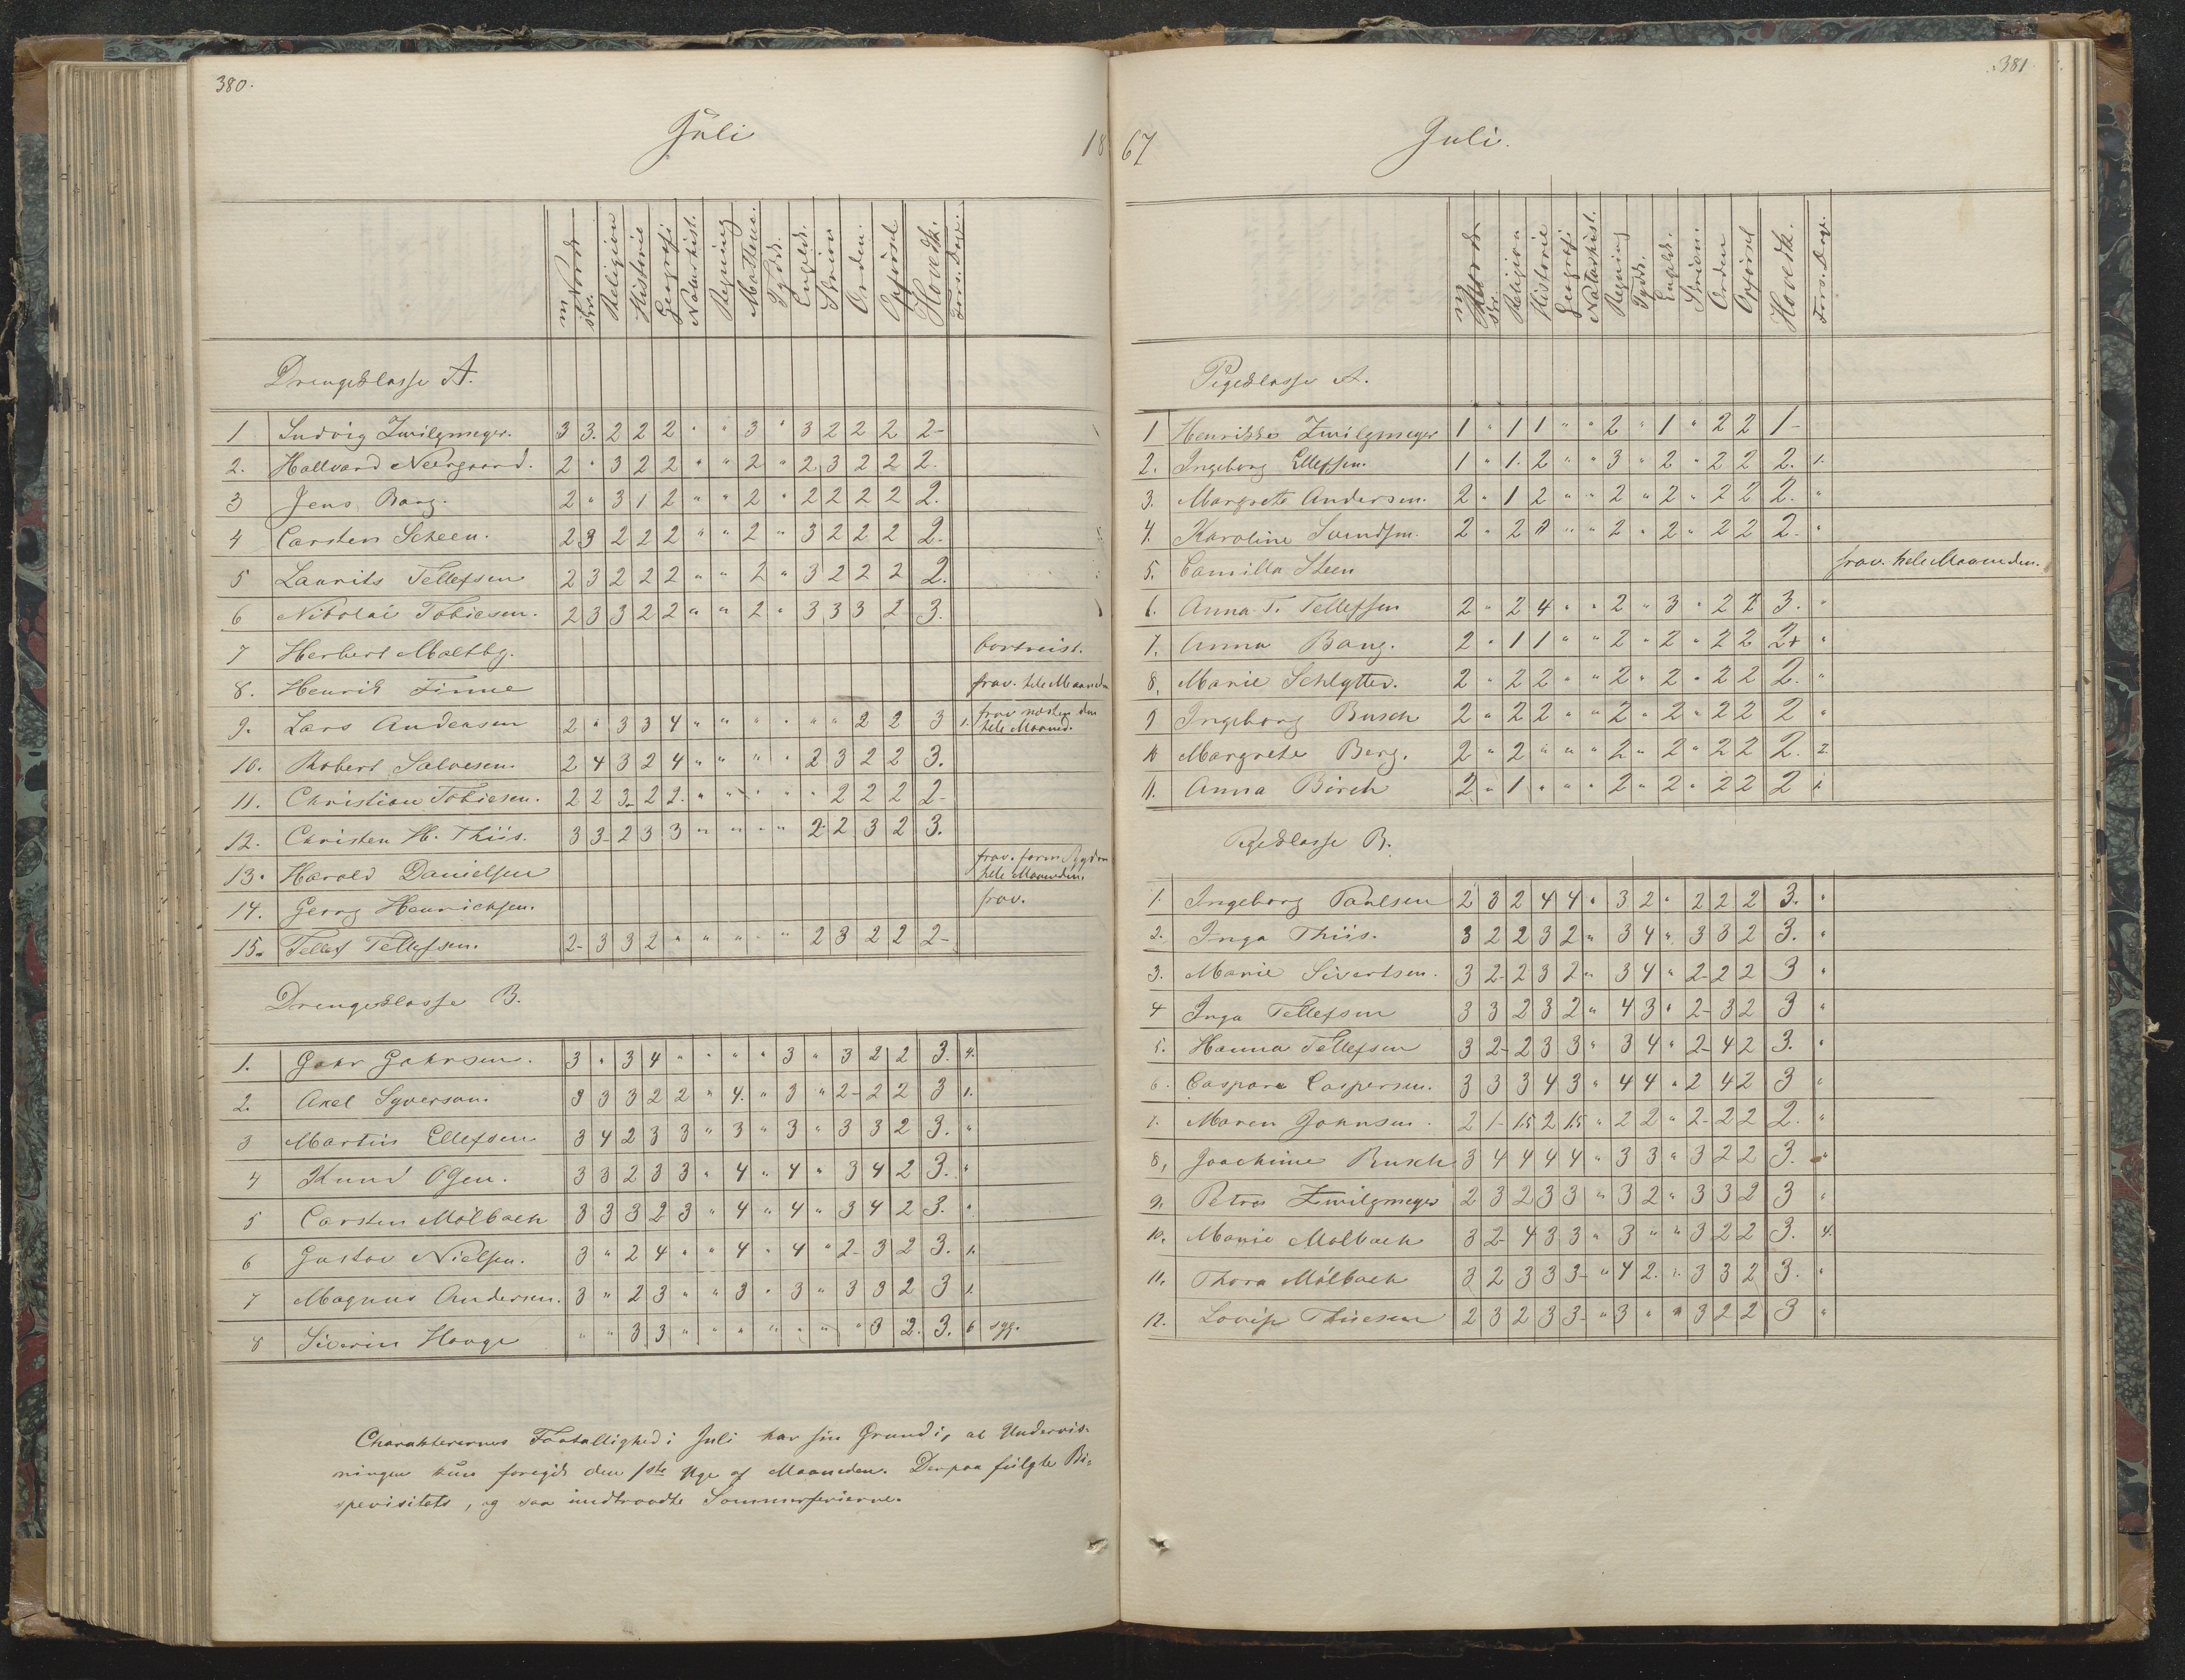 380.
Juli
18
m Norsk skr. Religion Historie Geografi Naturhist. Regning Mathem. Tydsk. Engelsk. Skrivn Orden. Opførsel Hovedk. Fors. Dage.
Drengeklasse A.
1 Ludvig Zwilgmeyer. 3 3. 2 2 2 " " 3 " 3 2 2 2 2-
2. Hallvard Neergaard. 2 " 3 2 2 " " 2 " 2 3 2 2 2.
3 Jens Bang. 2 " 3 1 2 " " 2 " 2 2 2 2 2.
4 Carsten Scheen. 2 3 2 2 2 " " 2 " 3 2 2 2 2.
5 Laurits Tellefsen 2 3 2 2 2 " " 2 " 3 2 2 2 2.
6 Nikolai Tobiesen. 2 3 3 2 2 " " 2 " 3 3 3 2 3.
7 Herbert Maltby. bortreist.
8. Henrik Finne frav. hele Maaneden
9. Lars Andersen 2 " 3 3 4 " " " " " " 2 2 3 1. frav næsten den hele Maaned.
10. Robert Salvesen. 2 4 3 2 4 " " " " 2 3 2 2 3.
11. Christian Tobiesen. 2 2 3- 2 2. " " " " " 2 2 2 2-
12. Christen H. Thiis. 3 3- 2 3 3 " " " " 2- 2 3 2 3.
13. Harald Danielsen frav. form. Sygdom hele Maaneden.
14. Georg Henrichsen. frav.
15. Tellef Tellefsen. 2- 3 3 2 " " " " " 2 3 2 2 2-
Drengeklasse B.
1. Gahr Gahrsen. 3 " 3 4 " " " " 3 " 3 2 2 3. 4.
2. Axel Syverson. 3 3 3 2 2 " 4. " 3 " 2- 2 2 3 1.
3 Martin Ellefsen 3 4 2 3 3 " 3 " 3 " 3 3 2 3. "
4 Knud Olsen. 3 3 2 3 3 " 4 " 4 " 3 4 2 3. "
5 Carsten Mölbach 3 3 3 2 3 " 4 " 4 " 3 4 2 3. "
6 Gustav Nielsen. 3 " 2 4 " " 4 " 4 " 2- 3 2 3. 1.
7 Magnus Andersen. 3 " 2 3 " " 3 " 3 " 3 3 2 3 1.
8 Siverin Hauge " " 3 3 " " " " " " " 3 2. 3. 6 syg.
Charakterernes Faatallighed i Juli har sin Grund i, at Undervis-
ningen kun foregik den 1ste Uge af Maaneden. Derpaa fulgte Bi-
spevisitats, og saa indtraadte Sommerferierne.
381
67
Juli.
m Norsk skr. Religion Historie Geografi Naturhist. Regning Tydsk. Engelsk. Skrivn. Orden Opførsel Hovedk. Fors. Dage.
Pigeklasse A.
1 Henrikke Zwilgmeyer 1 " 1 1 " " 2 " 1 " 2 2 1-
2. Ingeborg Ellefsen. 1 " 1. 2 " " 3 " 2 " 2 2 2. 1.
3. Margrete Andersen. 2 " 1 2 " " 2 " 2 " 2 2 2. "
4. Karoline Svendsen. 2 " 2 1 " " 2 " 2 " 2 2 2. "
5. Camilla Steen frav. hele Maaneden.
6. Anna T. Tellefsen 2 " 2 4 " " 2 " 3 " 2 2 3. "
7. Anna Bang. 2 " 1 1 " " 2 " 2 " 2 2 2+ "
8. Marie Schlytter. 2 " 2 2 " " 2 " 2 " 2 2 2. "
9 Ingeborg Busch 2 " 2 2 " " 2 " 2 " 2 2 2 "
10 Margrete Berg. 2 " 2 " " " 2 " 2 " 2 2 2. 2.
11. Anna Birch 2 " 1 " " " 2 " 2 " 2 2 2 1.
Pigeklasse B.
1. Ingeborg Paulsen 2 3 2 4 4 " 3 2 " 2 2 2 3. "
2. Inga Thiis. 3 2 2 3 2 " 3 4 " 3 3 2 3. "
3. Marie Sivertsen. 3 2- 2 3 2 " 3 4 " 2- 2 2 3 "
4 Inga Tellefsen 3 3 2 3 2 " 4 3 " 2- 3 2 3 "
5. Hanna Tellefsen 3 2- 2 3 3 " 3 4 " 2- 4 2 3. "
6. Caspara Caspersen. 3 3 3 4 3 " 4 4 " 2 4 2 3 "
7. Maren Johnsen. 2 1- 1.5 2 1.5 " 2 2 " 2- 2 2 2. "
8. Joachime Busch 3 4 4 4 4 " 3 3 " 3 2 2 3. "
9. Petra Zwilgmeyer 2 3 2 3 3 " 3 2 " 3 3 2 3 "
10. Marie Mølbach 3 2- 4 3 3 " 3 " " 3 2 2 3. 4.
11. Thora Mölbach 3 2 3 3 3- " 4 2. " 3 3 2 3. "
12. Lovise Thiesen 2 3 2 3 3- " 3 " " 3 2 2 3 "